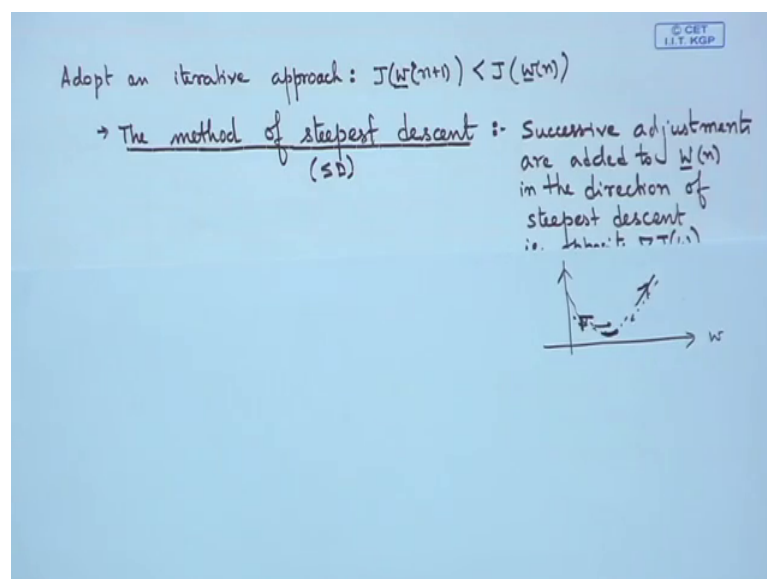 © CET
I.I.T. KGP
Adopt an iterative approach : J(W(n+1)) < J(W(n))
→ The method of steepest descent :- Successive adjustments
(SD)
are added to W(n)
in the direction of
steepest descent
i.e.
W